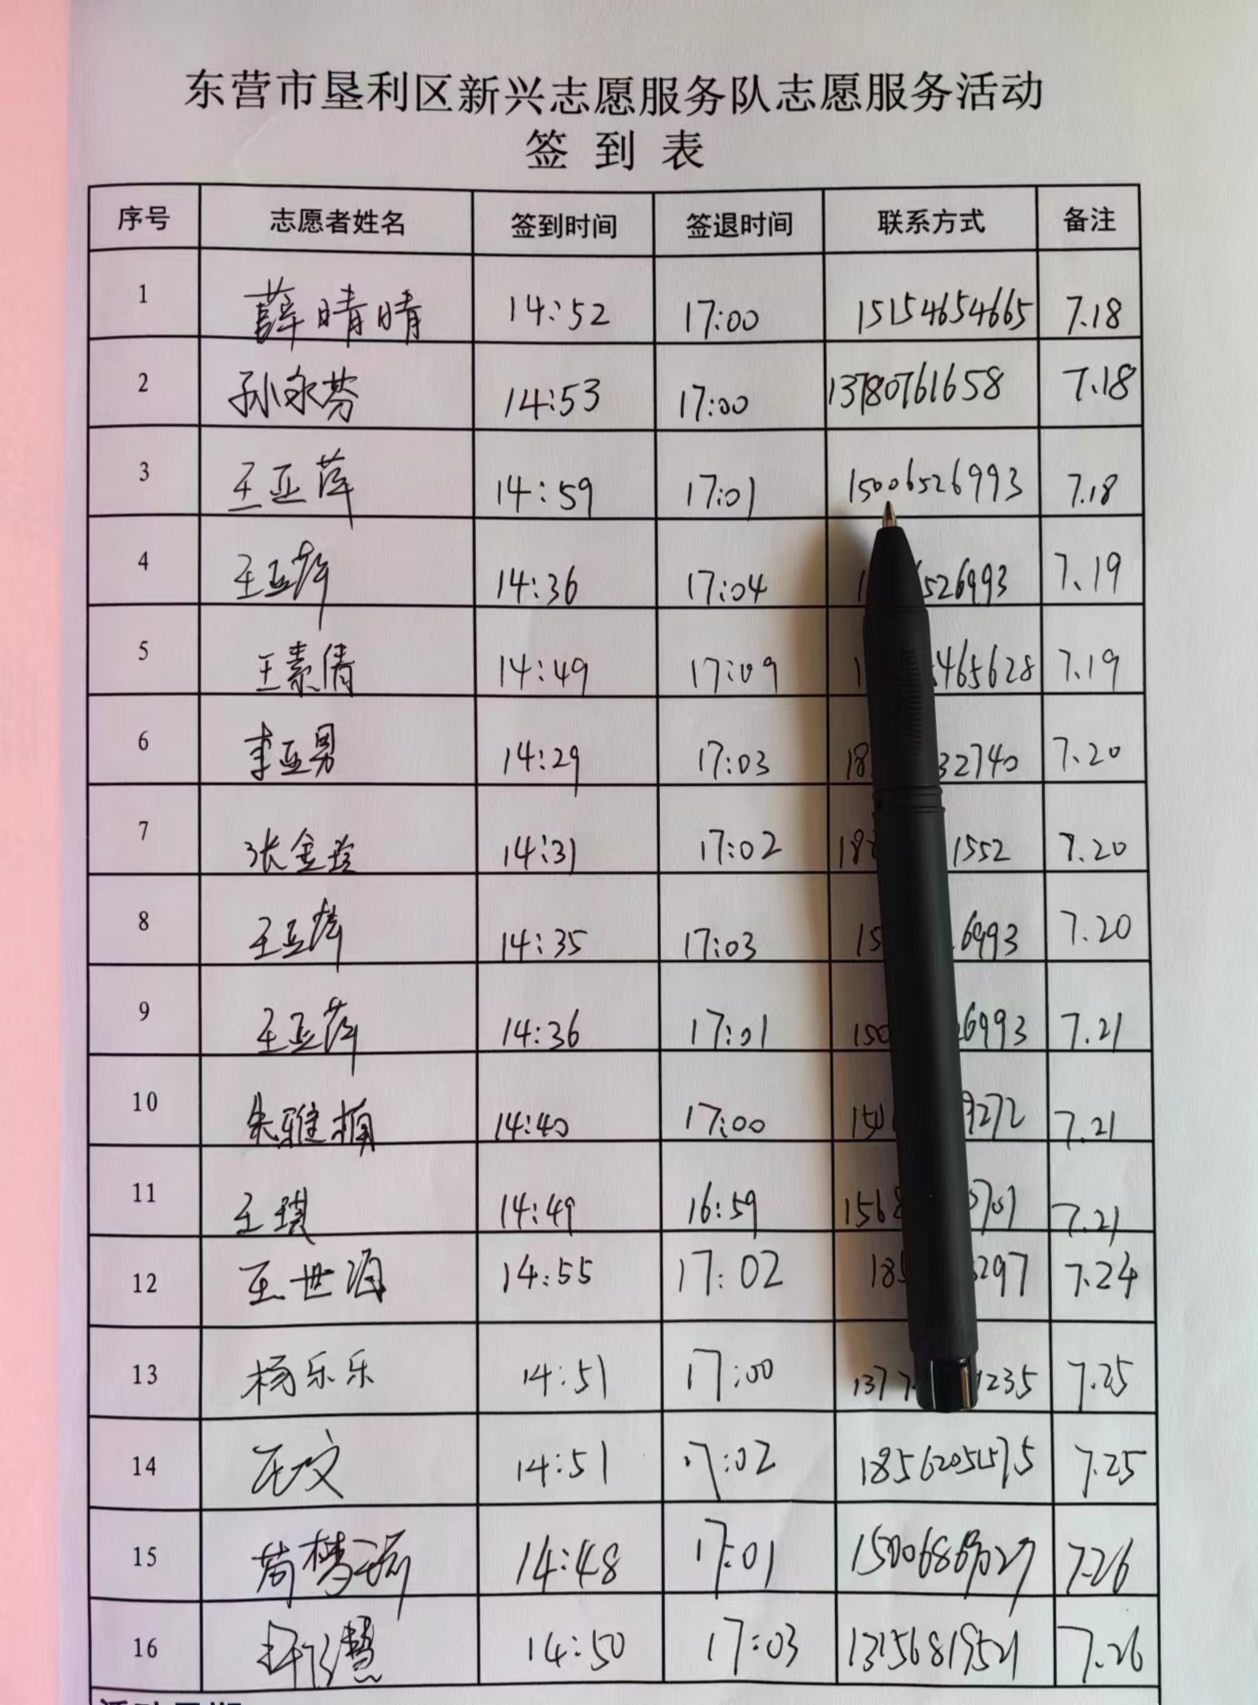 东营市垦利区新兴志愿服务队志愿服务活动
签到表
序号 志愿者姓名 签到时间 签退时间 联系方式 备注
1 薛晴晴 14:52 17:00 15154654665 7.18
2 孙永芬 14:53 17:00 13780761658 7.18
3 王亚萍 14:59 17:01 15006526993 7.18
4 王亚萍 14:36 17:04 526993 7.19
5 王素倩 14:49 17:09 465628 7.19
6 李亚男 14:29 17:03 18 32740 7.20
7 张金玲 14:31 17:02 18 1552 7.20
8 王亚萍 14:35 17:03 15 6993 7.20
9 王亚萍 14:36 17:01 150 6993 7.21
10 朱雅楠 14:40 17:00 9272 7.21
11 王琪 14:49 16:59 1568 7.21
12 王世海 14:55 17:02 18 297 7.24
13 杨乐乐 14:51 17:00 137 1235 7.25
14 文 14:51 17:02 7.25
15 苟梦 14:48 17:01 7.26
16 慧 14:50 17:03 13156819521 7.26